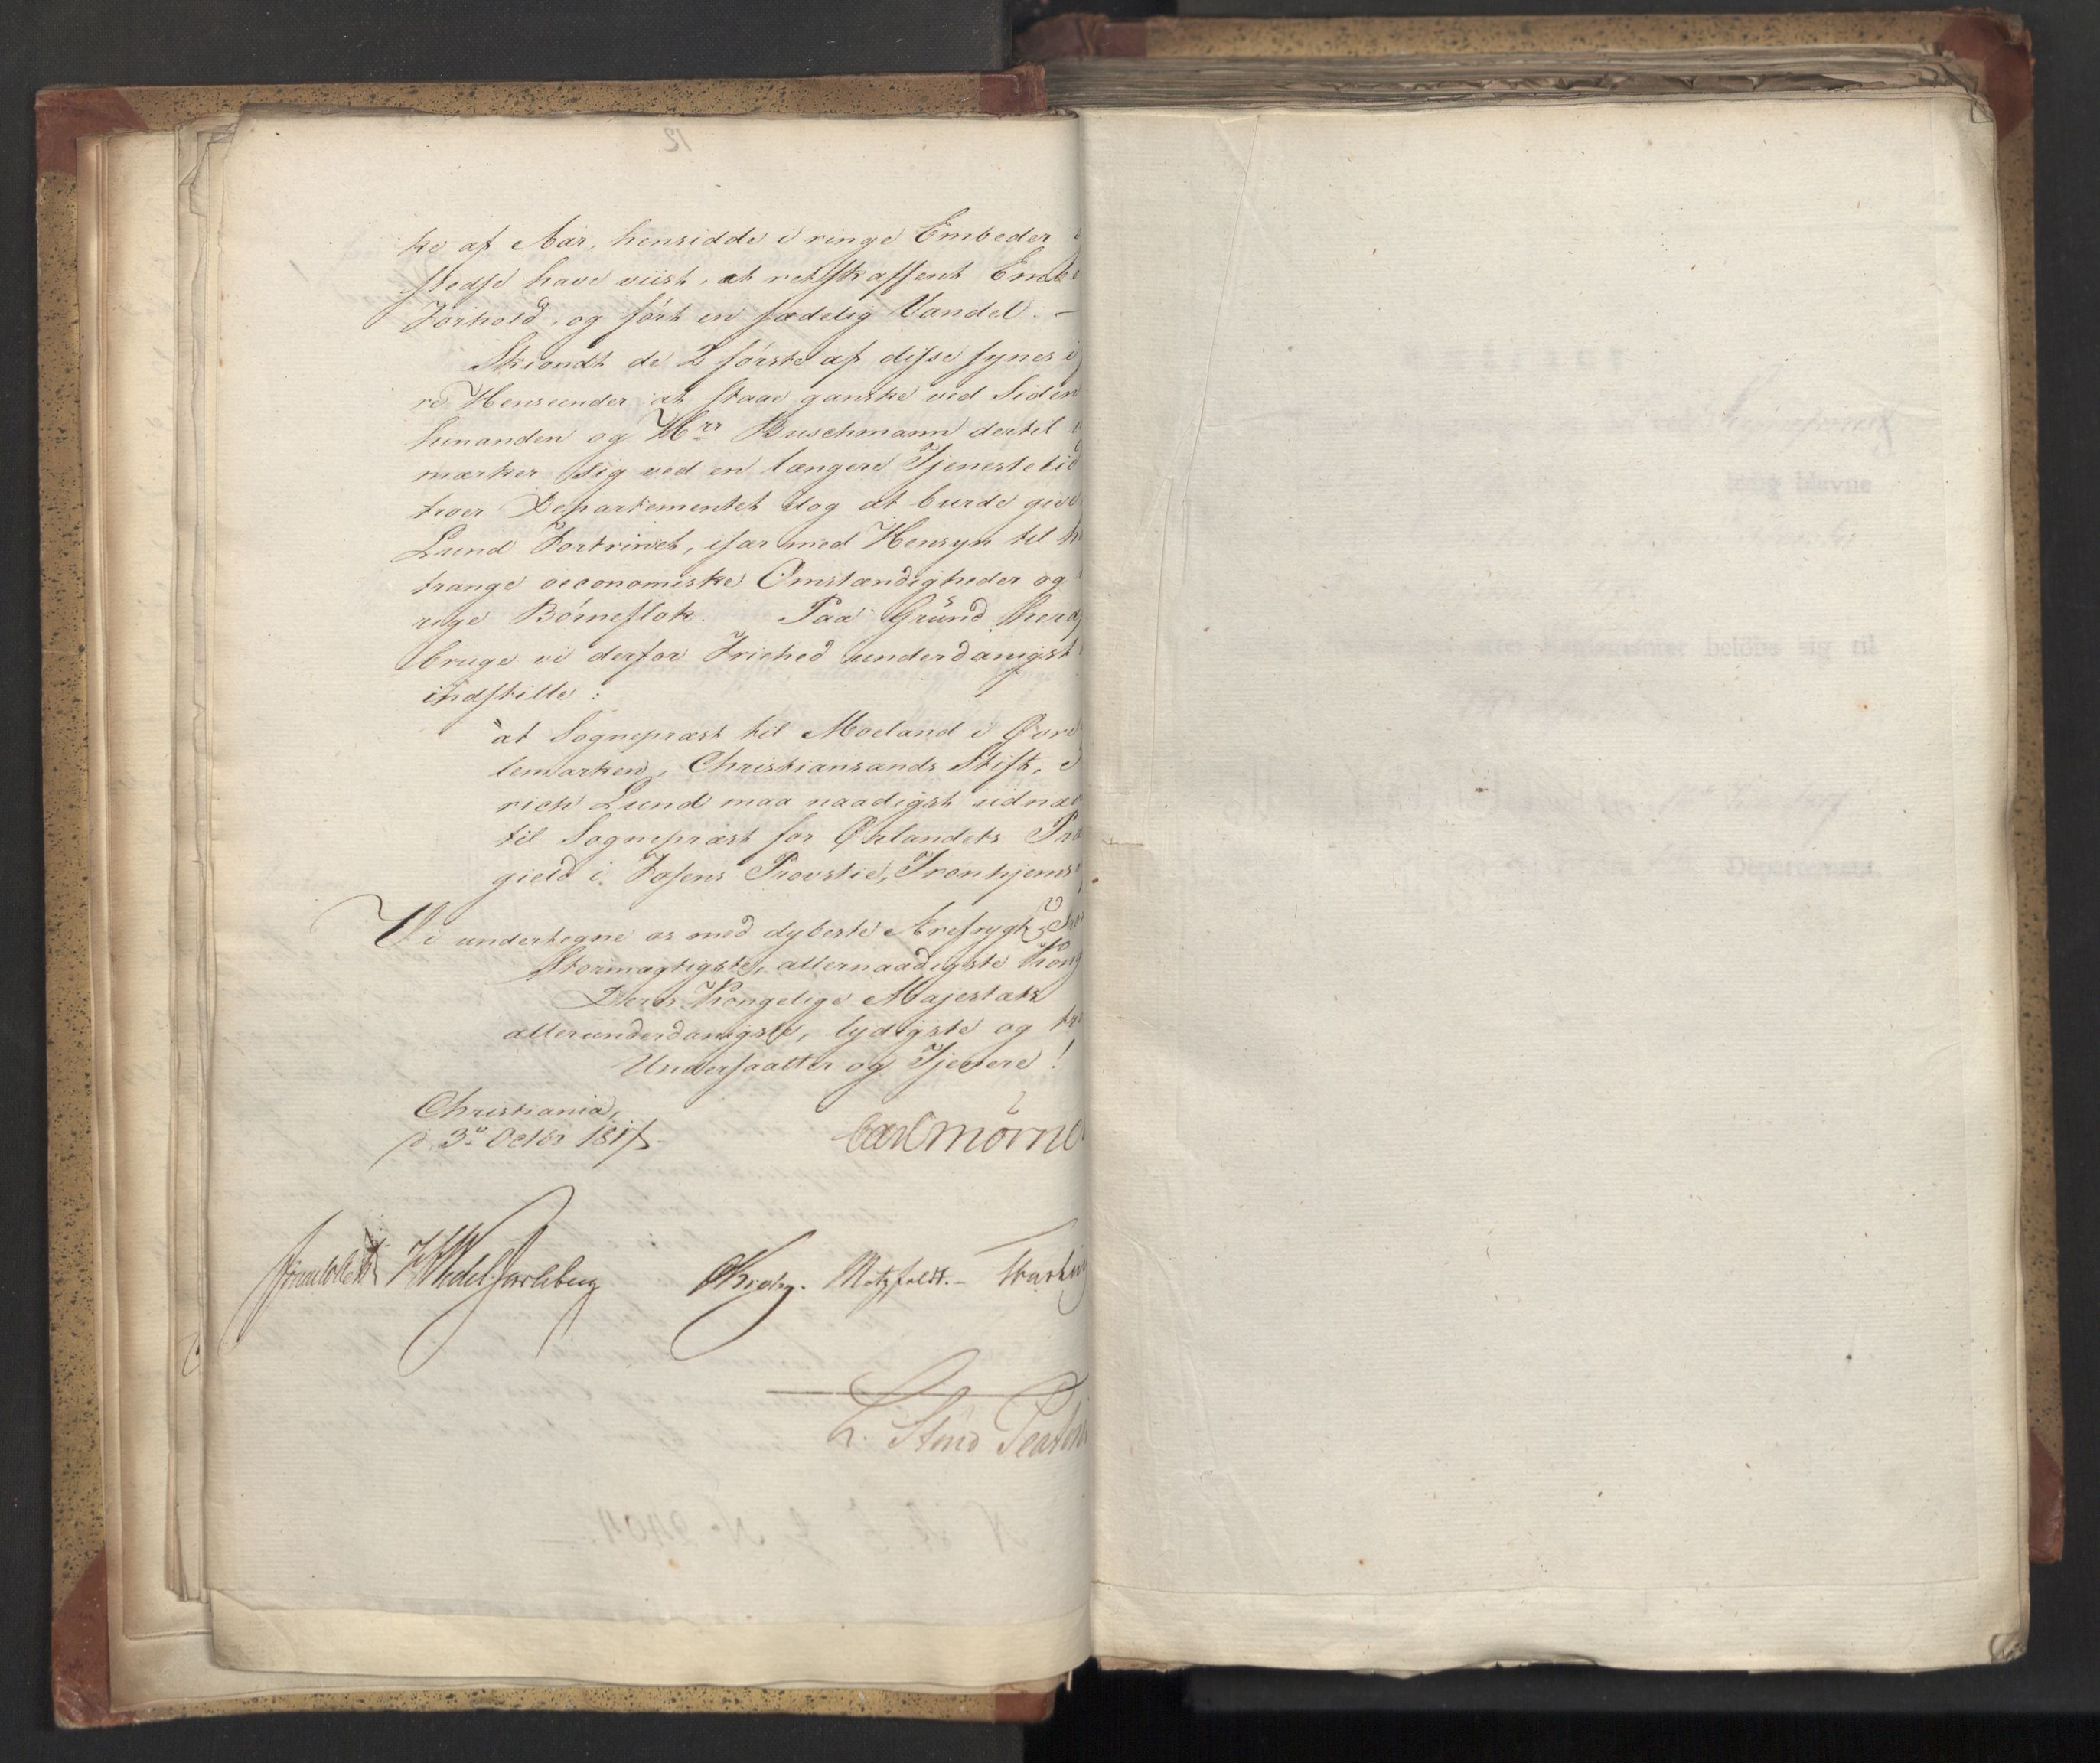 ke af Aar, hensidde i ringe Embeder
stedse have viist, et retskaffent Embe
Forhold, og ført en sædelig Vandel. –
Skiøndt de 2 første af disse synes i
re Henseender at staae ganske ved Siden
hinanden og Hrr Buschmann dertil
mærker sig ved en længere Tjenestetid
troer Departementet dog at burde give
Lund Fortrinet, især med Hensyn til h
trange oeconomiske Omstændigheder og
rige Børneflok. Paa Grund hera
bruge vi derfor Friehed underdanigst
indstille:
"at Sognepræst til Moeland i Øvre
lemarken, Christiansands Stift,
rich Lund maa naadigst udnæ
til Sognepræst for Ørlandets Præ
gield i Fosens Provstie, Tronhjems
Vi undertegne os med dybeste Ærefrygt,
Stormægtigste, allernaadigste Kong
Deres Kongelige Majestæts
allerunderdanigste, lydigste og tr
Undersaatter og Tjenere!
Christiania,
d. 3e Octbr 1817.
Carl Mörne
Sommerhielm HWedel Jarlsberg Krohg. Motzfeldt.–